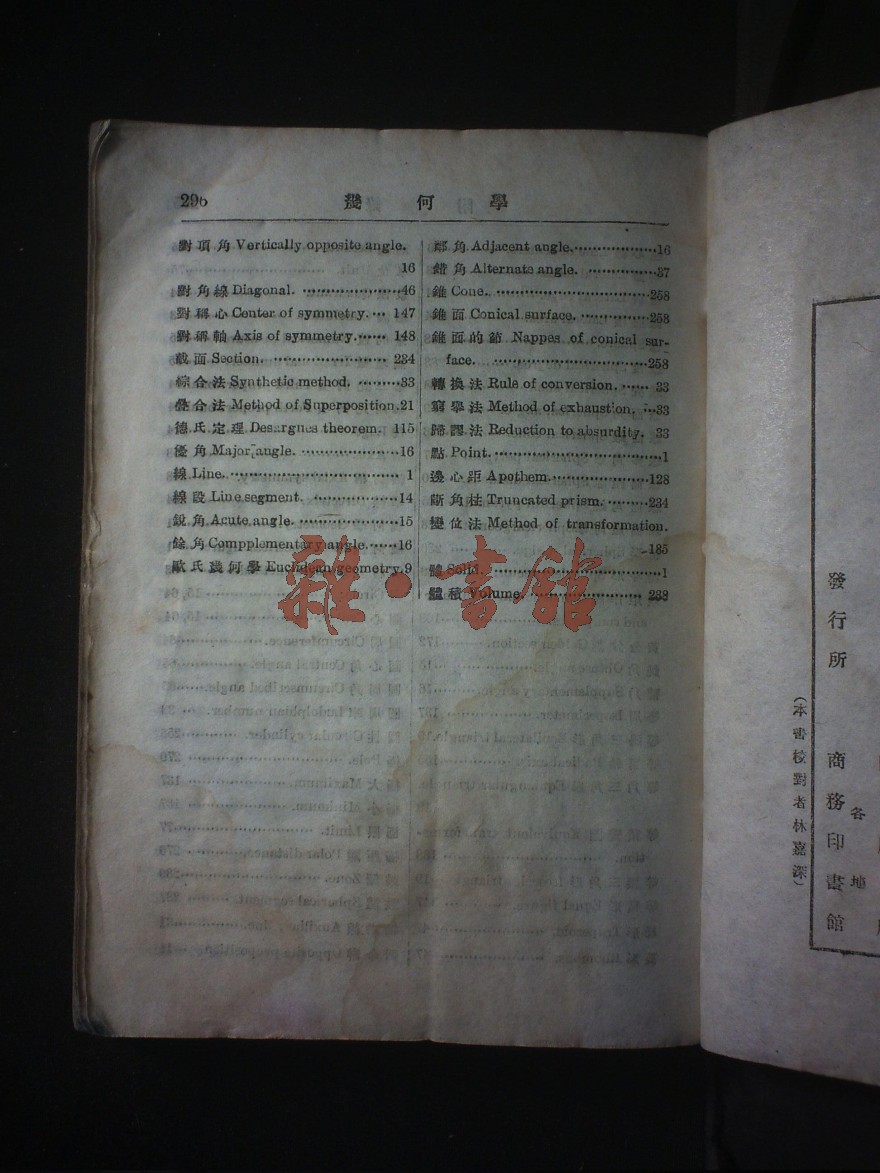 296 幾何學
對頂角 Vertically opposite angle.
16
對角線 Diagonal. ····················46
對稱心 Center of symmetry. ··· 147
對稱軸 Axis of symmetry. ······ 148
截面 Section. ······················· 234
綜合法 Synthetic method. ·········33
疊合法 Method of Superposition.21
德氏定理 Desargues theorem. 115
優角 Major angle. ····················16
線 Line. ·································· 1
線段 Line segment. ·················14
銳角 Acute angle. ····················15
餘角 Compplementary angle. ······16
歐氏幾何學 Euclidean geometry.9
鄰角 Adjacent angle. ·················16
錯角 Alternate angle. ··············37
錐 Cone. ·······························258
錐面 Conical surface. ··············258
錐面的節 Nappes of conical sur-
face. ·······························258
轉換法 Rule of conversion. ······ 33
窮舉法 Method of exhaustion. ···33
歸謬法 Reduction to absurdity. 33
點 Point. ··································1
邊心距 Apothem. ···················128
斷角柱 Truncated prism. ·········234
變位法 Method of transformation.
185
體 Solid. ··································1
體積 Volume. ························ 238
雜·書館
發行所 商務印書館
各地
(本書校對者林嘉深)